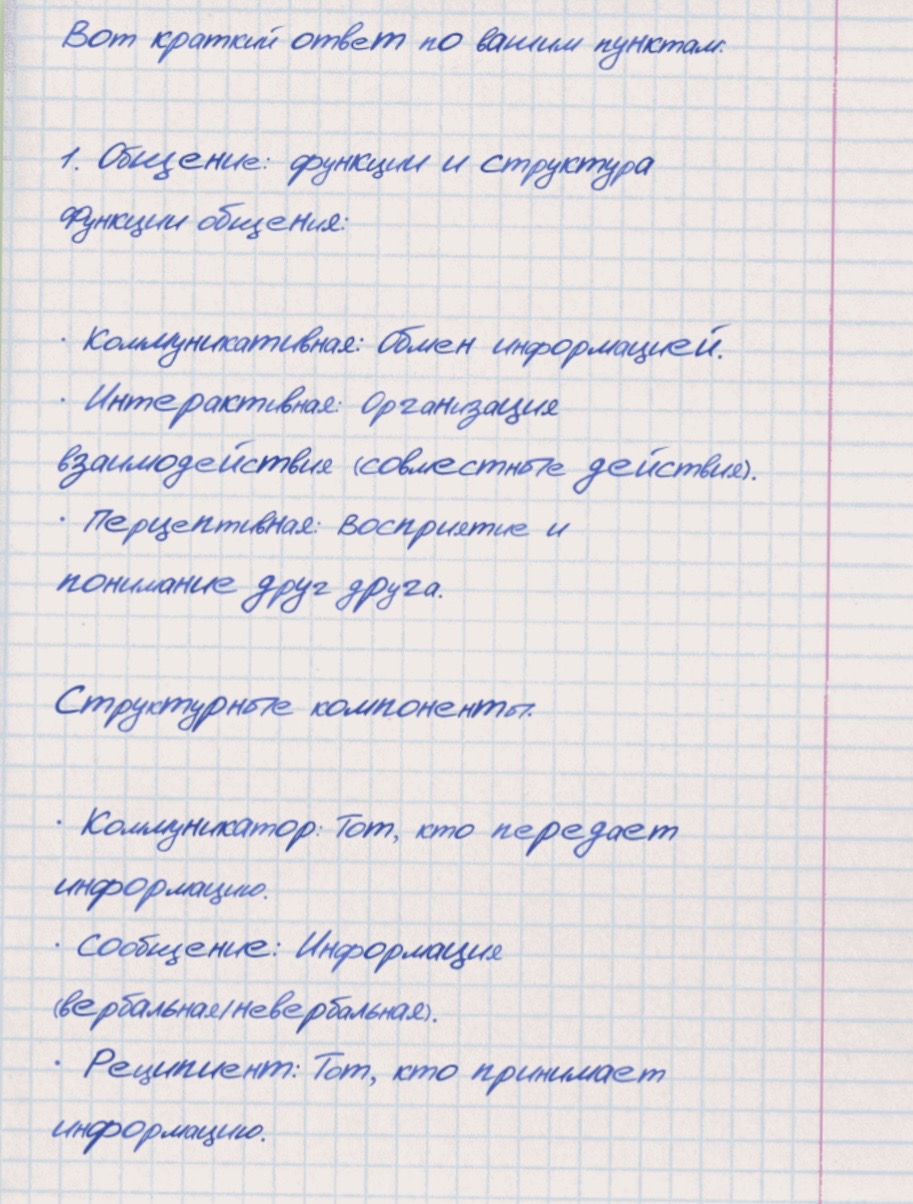 Вот краткий ответ по вашим пунктам:
1. Общение: функции и структура
Функции общения:
· Коммуникативная: Обмен информацией.
· Интерактивная: Организация
взаимодействия (совместные действия).
· Перцептивная: Восприятие и
понимание друг друга.
Структурные компоненты:
· Коммуникатор: Тот, кто передает
информацию.
· Сообщение: Информация
(вербальная/невербальная).
· Реципиент: Тот, кто принимает
информацию.